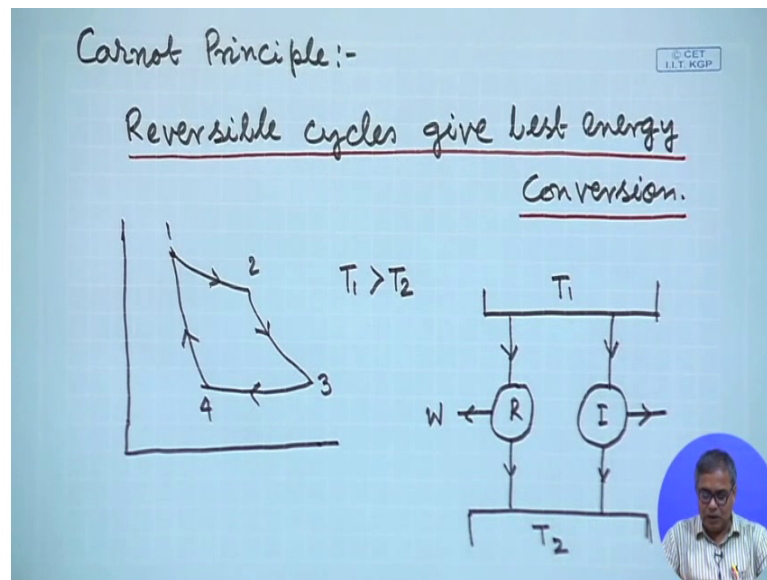 Carnot Principle:-
© CET
I.I.T. KGP
Reversible cycles give best energy
Conversion.
1
2
3
4
T₁ > T₂
T₁
W
R
I
T₂